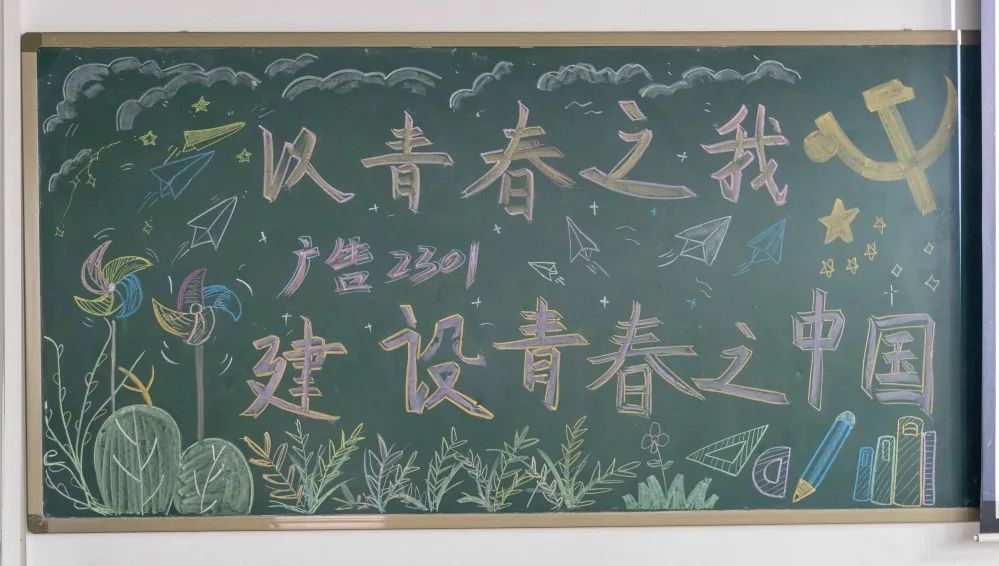 以青春之我
广告2301
建设青春之中国